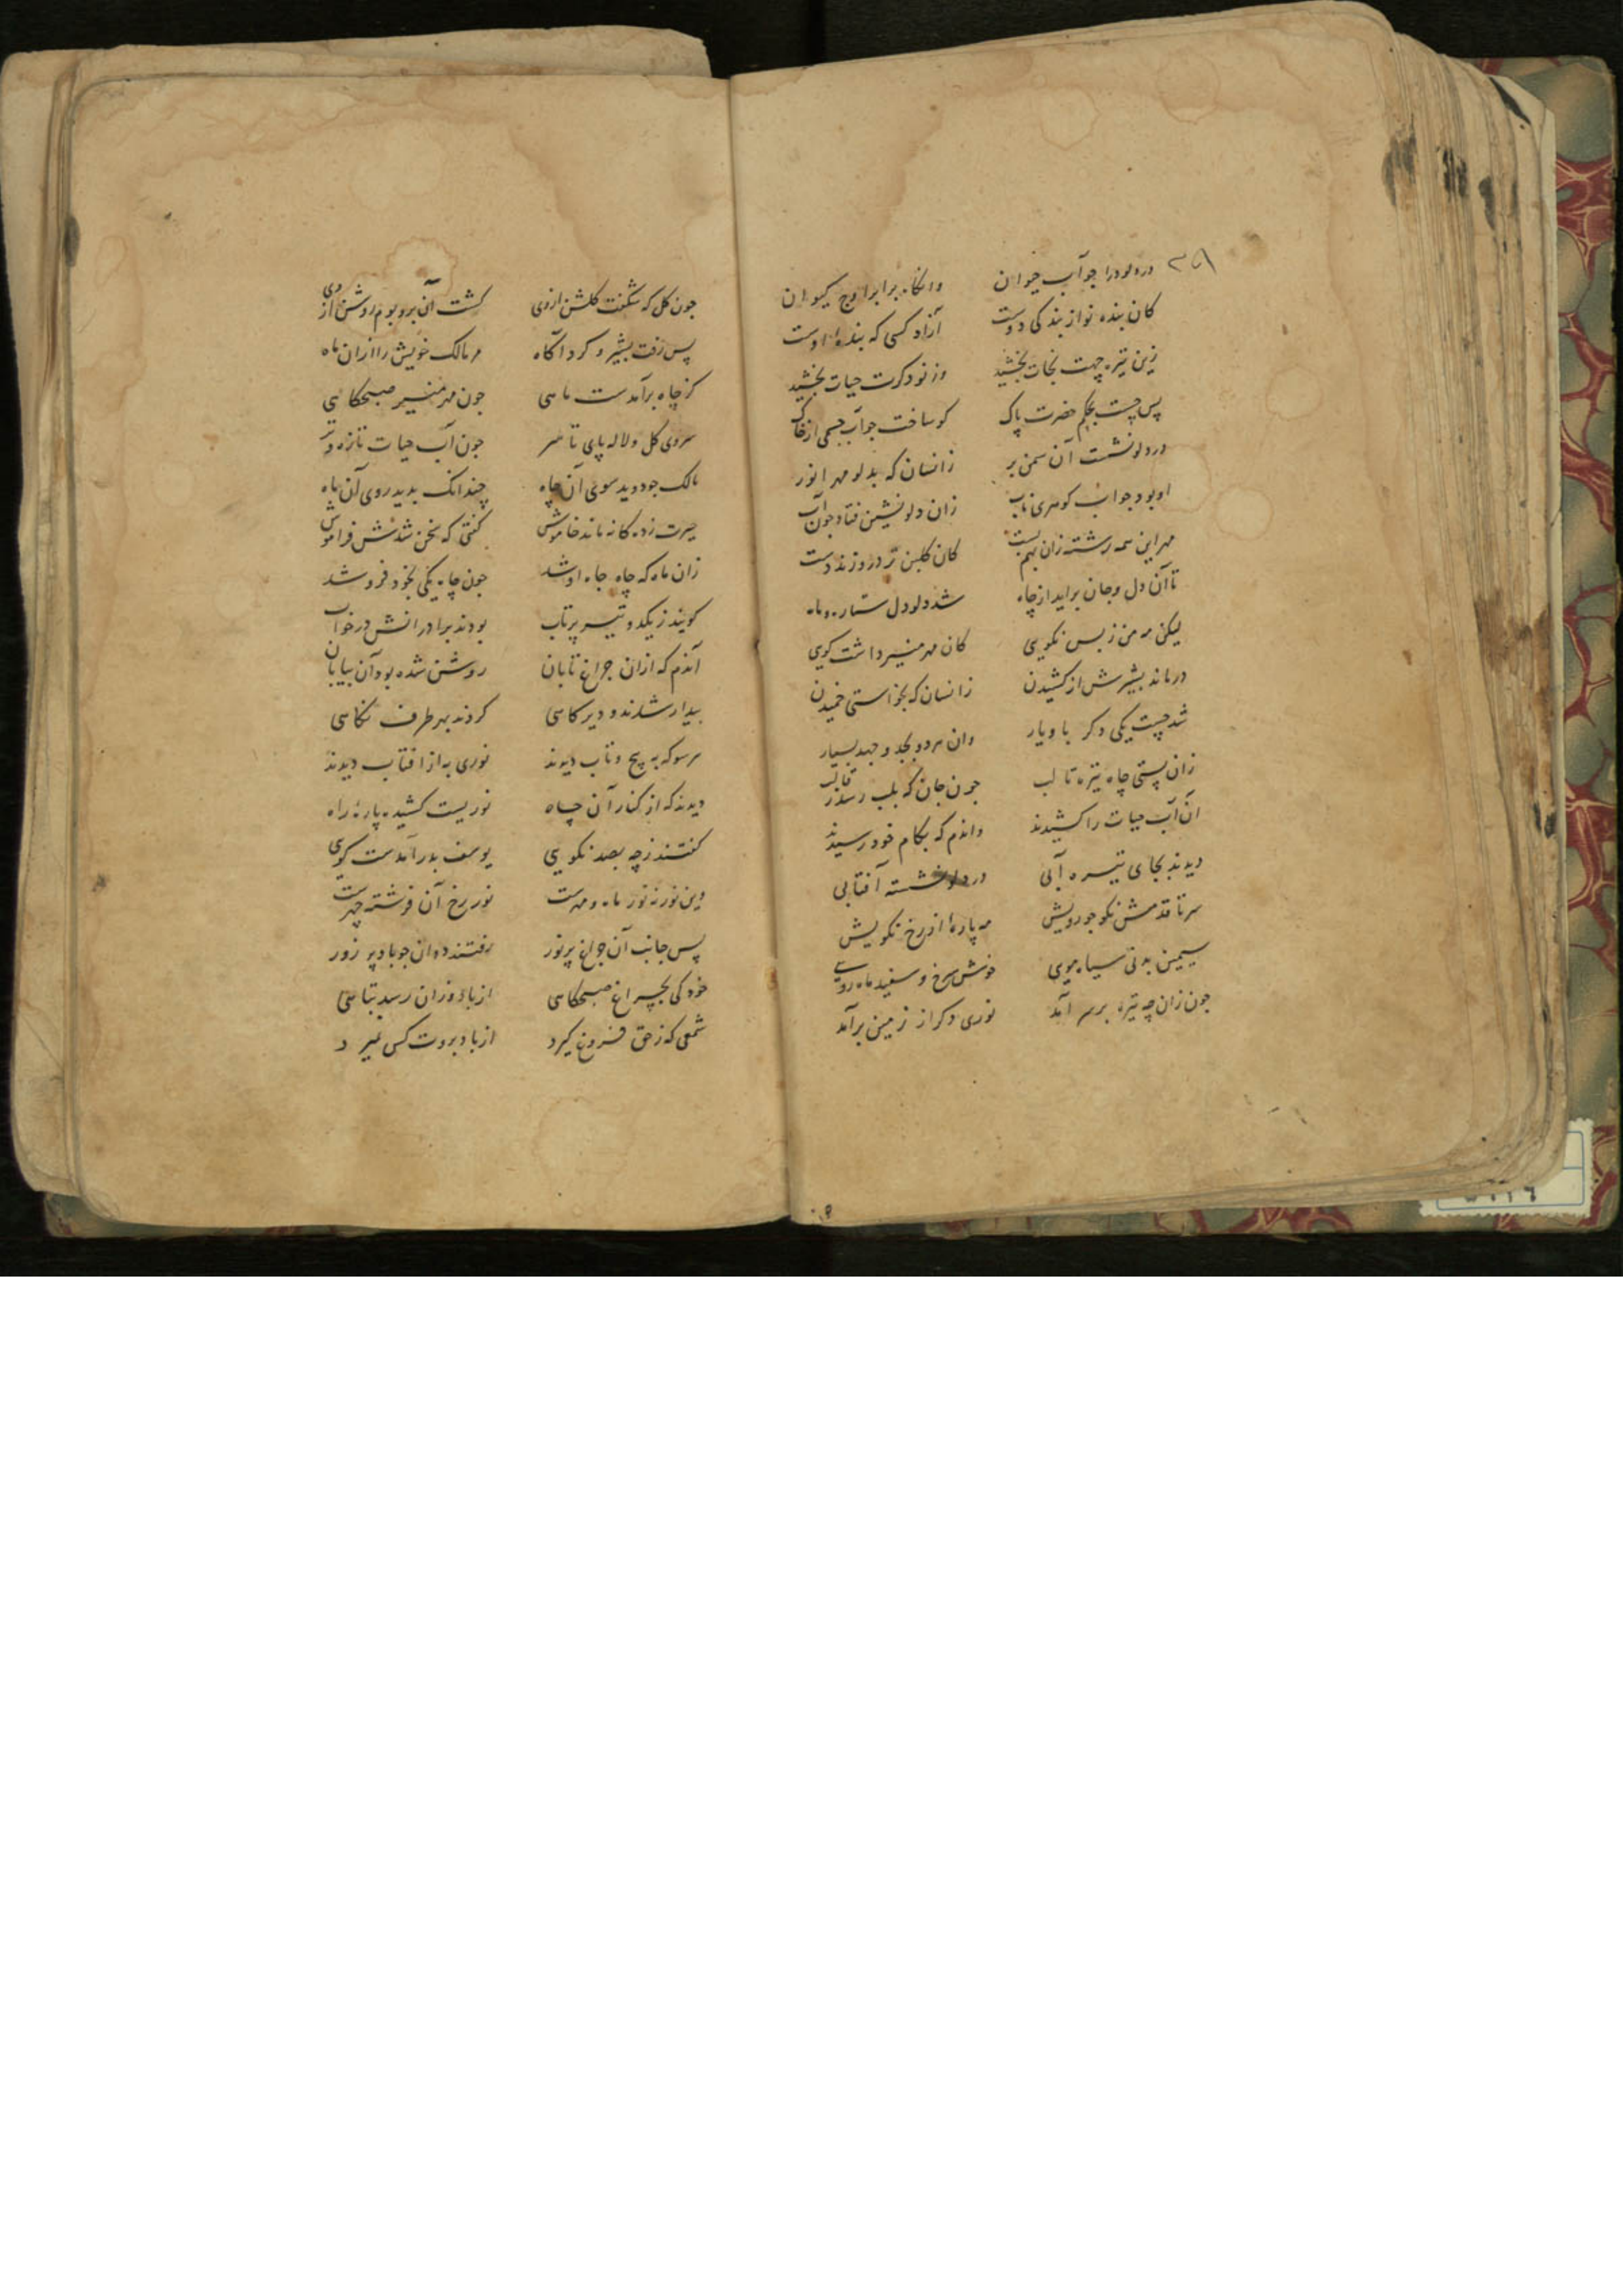 در دلو درا چو آب حیوان وانکاه برا براوج کیوان
کان بنده نواز بندکی دوست آزاد کسی که بنده اوست
زین تیره چهت نجات بخشید وز نو دکرت حیات بخشید
پس جست بحکم حضرت پاک کو ساخت جو آب جسمی از خاک
در دلو نشست آن سمن بر زانسان که بدلو مهر انور
او بود جو آب کوهری ناب زان دلو نشین فتاد جون آب
مهر این همه رشته زان بهم بست کان کلبن تر درو زند دست
تا آن دل وجان براید از چاه شد دلو دل ستاره و ماه
لیکن مه من ز بس نکویی کان مهر منیر داشت کویی
درماند بشیرش از کشیدن زانسان که بخواستی خمیدن
شد جست یکی دکر با ویار وان هر دو بجد و جهد بسیار
زان پستی چاه تیره تا لب جون جان که بلب رسد ز قالب
آن آب حیات را کشیدند واندم که بکام خود رسیدند
دیدند بجای تیره آبی در دلو نشسته آفتابی
سر تا قدمش نکو جو رویش مه پاره از رخ نکویش
سیمین بدنی سیاه مویی خوش سرخ و سفید ماه رویی
جون زان چه تیره برسر آمد نوری دکر از زمین برآمد
جون کل که شکفت کلشن ازوی کشت آن بر و بوم روشن از وی
پس رفت بشیر و کرد آکاه مر مالک خویش را ازان ماه
کز چاه برآمدست ماهی جون مهر منیر صبحکاهی
سروی کل و لاله پای تا سر جون آب حیات تازه و تر
مالک جو دوید سوی آن چاه چندانک بدید روی آن ماه
حیرت زده کانه ماند خاموش کفتی که سخن شدش فراموش
زان ماه که چاه جاه او شد جون چاه یکی بخود فرو شد
کویند ز یکدو تیر پرتاب بودند برادرانش در خواب
آندم که ازان جراغ تابان روشن شده بود آن بیابان
بیدار شدند و دیر کاهی کردند بهر طرف نکاهی
هر سو که به پیچ و تاب دیدند نوری به از افتاب دیدند
دیدند که از کنار آن چاه نوریست کشیده پاره راه
کفتند ز چه بصد نکویی یوسف بدر آمدست کویی
وین نور نه نور ماه و مهرست نور رخ آن فرشته چهرست
پس جانب آن جراغ پر نور رفتند دوان جو باد پر زور
خود کی بچراغ صبحکاهی از باد وزان رسد تباهی
شمعی که ز حق فروغ کیرد از باد بروت کس نمیرد